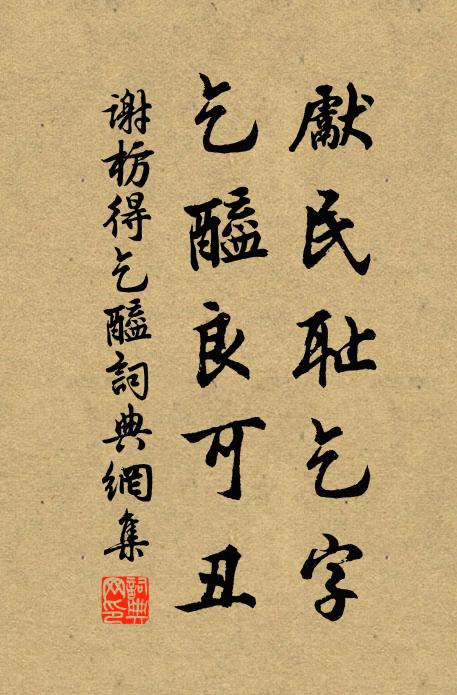 獻民耻乞字
乞醯良可丑
谢枋得乞醯詞典網集
詞典網印